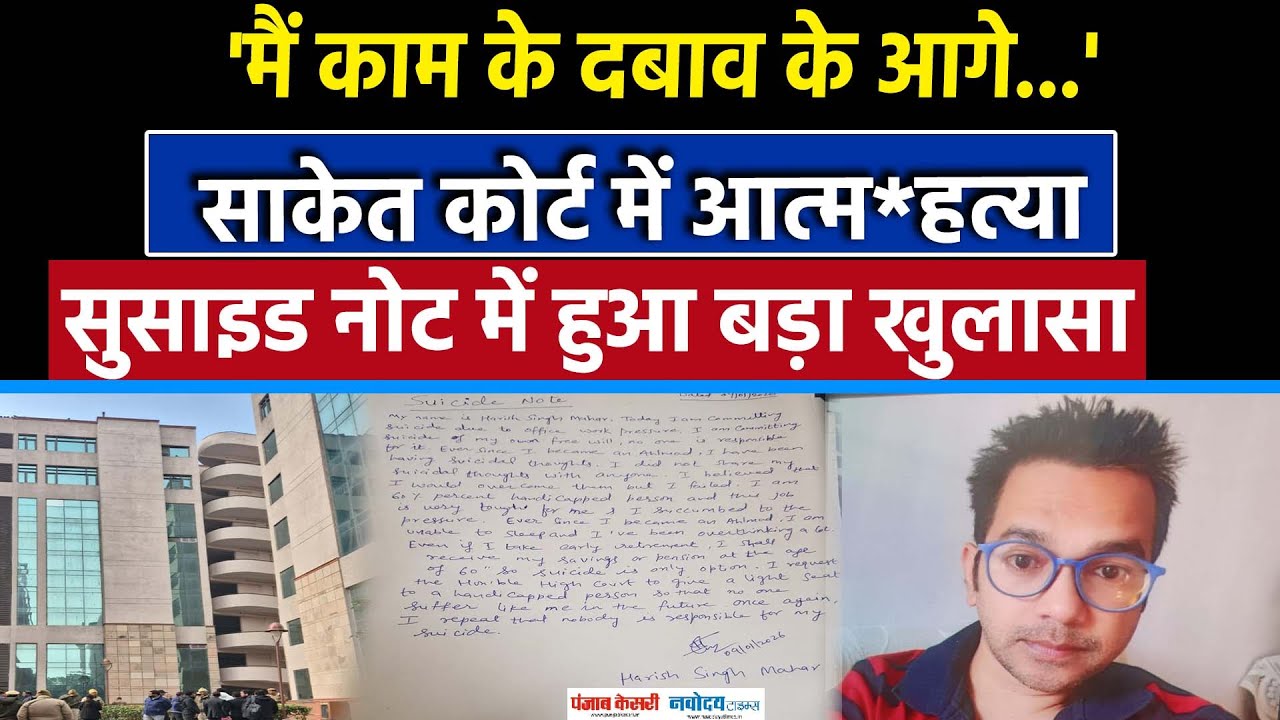 'मैं काम के दबाव के आगे...'
साकेत कोर्ट में आत्म*हत्या
सुसाइड नोट में हुआ बड़ा खुलासा
Suicide Note
My name is Harish Singh Mahar. Today I am Committing
Suicide due to office work pressure. I am Committing
Suicide of my own free will, no one is responsible
for it. Ever Since I became an Ahlmad, I have been
having Suicidal thoughts. I did not share my
Suicidal thoughts with anyone. I believed that
I would overcome them but I failed. I am
60% percent handicapped person and this job
is very tough for me & I succumbed to the
pressure. Ever Since I became an Ahlmad, I am
unable to Sleep and I've been overthinking a lot.
Even if I take early retirement, I shall
receive my savings or pension at the age
of 60 So Suicide is only option. I request
the Hon'ble High Court to give a light Seat
to a handicapped person so that no one
Suffer like me in the future once again,
I repeat that nobody is responsible for my
Suicide.
09/01/2026
Harish Singh Mahar
पंजाब केसरी नवोदय टाइम्स